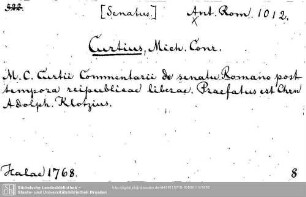 [Senatus.] Ant. Rom. 1012.
Curtius, Mich. Conr.
M. C. Curtii Commentarii de senatu Romano post
tempora reipublicae liberae. Praefatus est Chrn
Adolph. Klotzius.
Halae 1768. 8
Sächsische Landesbibliothek -
Staats- und Universitätsbibliothek Dresden